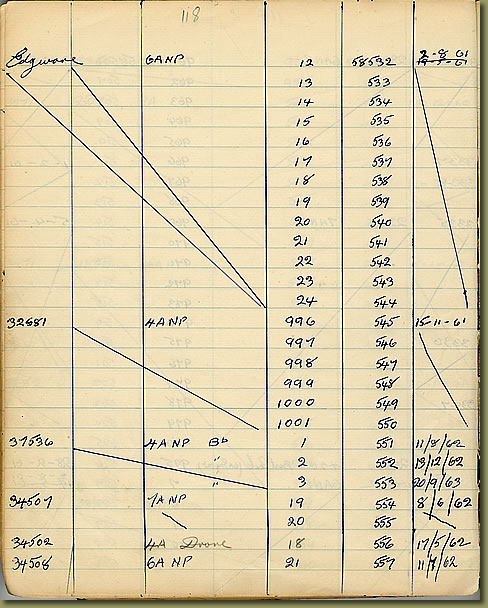 118
Edgware 6ANP 12 58532 2-8-61
13 533
14 534
15 535
16 536
17 537
18 538
19 539
20 540
21 541
22 542
23 543
24 544
32881 4ANP 996 545 15-11-61
997 546
998 547
999 548
1000 549
1001 550
37536 4ANP Bb 1 551 11/8/62
" 2 552 13/12/62
" 3 553 20/9/63
34507 7ANP 19 554 8/6/62
20 555
34502 4A Drone 18 556 17/5/62
34508 6ANP 21 557 11/7/62